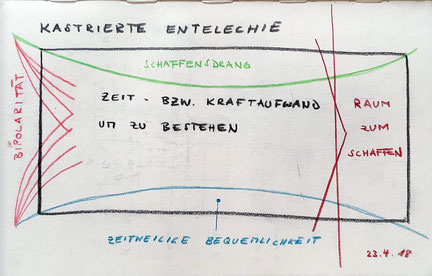 KASTRIERTE ENTELECHIE
SCHAFFENSDRANG
BIPOLARITÄT
ZEIT - BZW. KRAFTAUFWAND
UM ZU BESTEHEN
RAUM
ZUM
SCHAFFEN
ZEITWEILIGE BEQUEMLICHKEIT
23.4.18